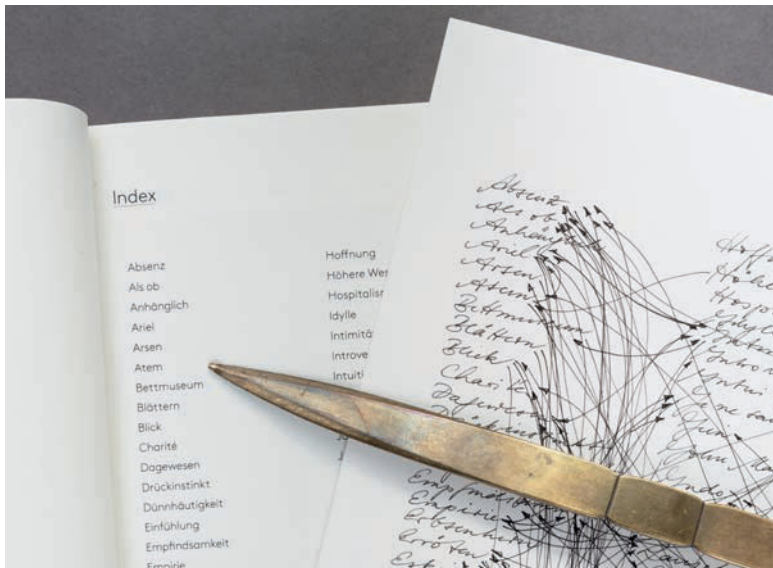 Index
Absenz
Als ob
Anhänglich
Ariel
Arsen
Atem
Bettmuseum
Blättern
Blick
Charité
Dagewesen
Drückinstinkt
Dünnhäutigkeit
Einfühlung
Empfindsamkeit
Empirie
Hoffnung
Höhere Wes
Hospitalisr
Idylle
Intimitä
Introve
Intuiti
Absenz
Als ob
Anhänglich
Ariel
Arsen
Atem
Bettmuseum
Blättern
Blick
Charité
Dagewesen
Empfindsam
Empirie
Erbsenhirn
Erröten
Hoff
Höhe
Hospi
Idyll
Intui